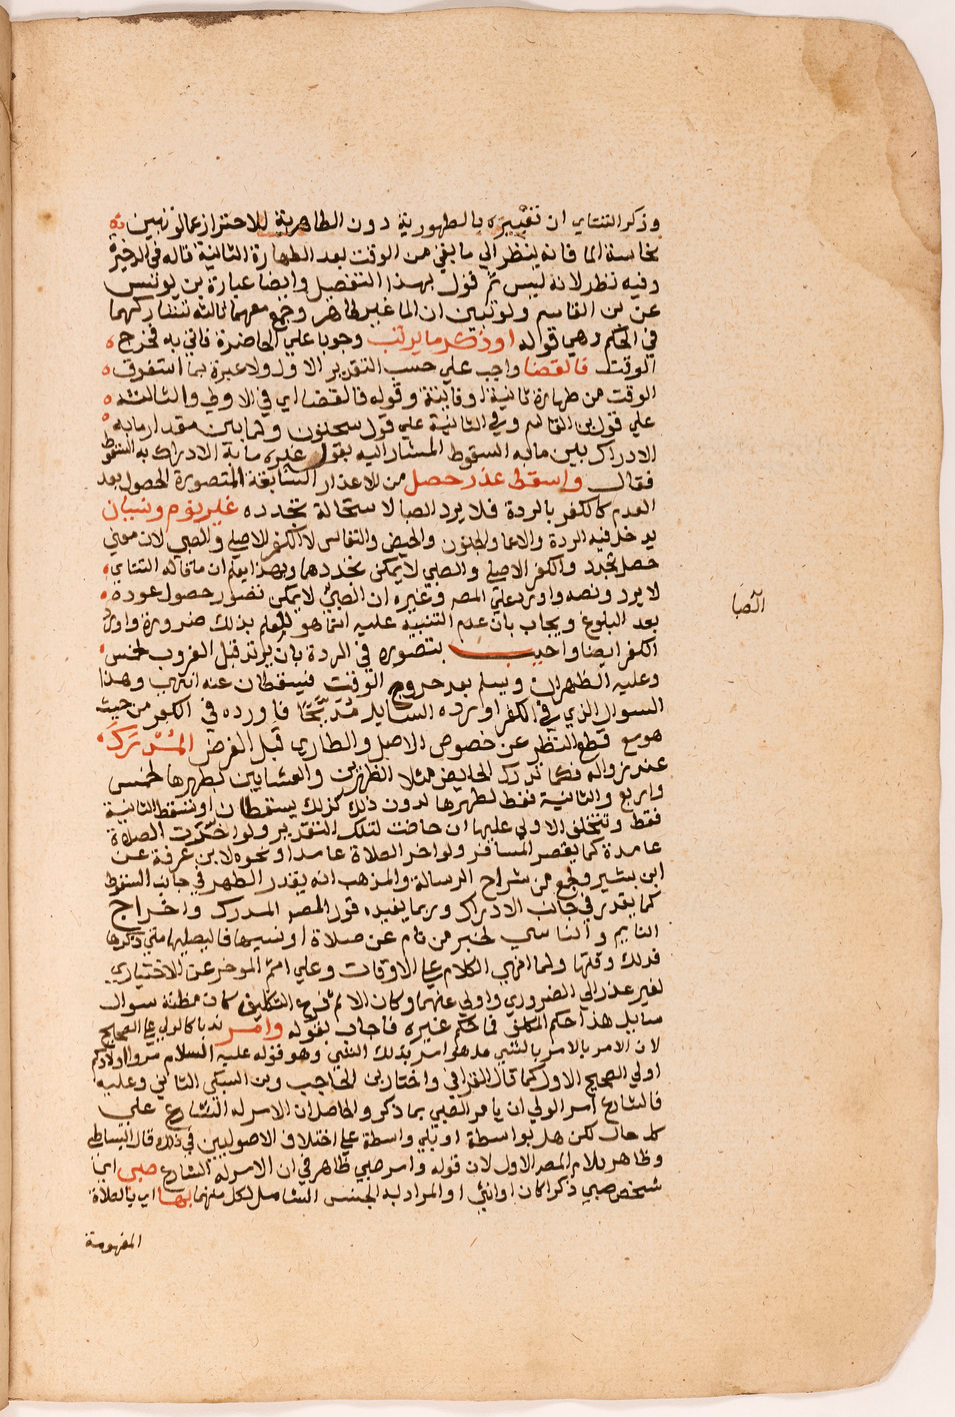 وذكر التتاي ان تعبيره بالطهورية دون الطاهرية للاحتراز عما لو تبين له
نجاسة الما فانه ينظر الي ما بقي من الوقت بعد الطهارة الثانية قاله في الذخيرة
وفيه نظر لانه ليس ثم قول بهذا التفصيل وايضا عبارة بن يونس
عن بن القاسم ولو تبين ان الما غير طاهر وجمع معهما ثالثة تشاركهما
في الحكم وهي قوله او ذكر ما يرتب وجوبا علي الحاضرة فاتي به فخرج
الوقت فالقضا واجب علي حسب التقدير الاول ولا عبرة بما استغرق
الوقت من طهارة ثانية او فاينة وقوله فالقضا اي في الاولي والثالثة
علي قول بن القاسم وفي الثانية علي قول سحنون ولما بين مقدار ما به
الادراك بين ما به السقوط المشار اليه بقول غيره ما به الادراك به السقوط
فقال واسقط عذر حصل من الاعذار السابقة المتصورة الحصول بعد
العدم كالكفر بالردة فلا يرد الصبا لاستحالة تجدده غير نوم ونسيان
يدخل فيه الردة والاغما والجنون والحيض والنفاس لا الكفر الاصلي والصبي لان معني
حصل تجدد والكفر الاصلي والصبي لا يمكن تجددهما وبهذا يعلم ان ما قاله التتاي
لا يرد ونصه واورد علي المص وغيره ان الصبي لا يمكن تصور حصول عوده
الصبا
بعد البلوغ ويجاب بان عدم التنبيه عليه انما هو للعلم بذلك ضرورة واورد
الكفر ايضا واجيب بتصوره في الردة بان يرتد قبل الغروب لخمس
وعليه الظهران ويسلم بعد خروج الوقت فيسقطان عنه انتهي وهذا
السوال الذي في الكفر اورده السايل مدبجا فاورده في الكفر من حيث
هو مع قطع النظر عن خصوص الاصل والطاري قبل الغرض المدرك
عند زواله فكما تدرك الحايض مثلا الظهرين والعشايين لطهرها لخمس
واربع والثانية فقط لطهرها لدون ذلك كذلك يسقطان او تسقط الثانية
فقط وتتخلف الاولي عليها ان حاضت لتلك التقدير ولو اخرت الصلاة
عامدة كما يقصر المسافر ولو اخر الصلاة عامدا ونحوه لابن عرفة عن
ابن بشير وجمع من شراح الرسالة والمذهب انه يقدر الطهر في جانب السقوط
كما يقدر في جانب الادراك وربما يفيده قول المص المدرك واخراج
النايم والناسي لخبر من نام عن صلاة او نسيها فاليصليها متي ذكرها
فذلك وقتها ولما انهي الكلام علي الاوقات وعلي اثم الموخر عن الاختياري
لغير عذر الي الضروري واولي عنهما وكان الاثم فرع التكليف كان مظنة سوال
سايل هذا حكم المكلف فما حكم غيره فاجاب بقوله وامر ندبا كالولي علي الصحيح
لان الامر بالامر بالشي هل هو امر بذلك الشي وهو قوله عليه السلام مروا اولادكم
اولي الصحيح الاول كما قال القرافي واختار بن الحاجب وبن السبكي الثاني وعليه
فالشارع امر الولي ان يامر الصبي بما ذكر والحاصل ان الامر له الشارع علي
كل حال لكن هل بواسطة او بلي واسطة علي اختلاف الاصوليين في ذلك قال البساطي
وظاهر كلام المص الاول لان قوله وامر صبي ظاهر في ان الامر له الشارع صبي اي
شخص صبي ذكرا كان او انثي او المراد به الجنس الشامل لكل منهما بها اي بالصلاة
المفهومة